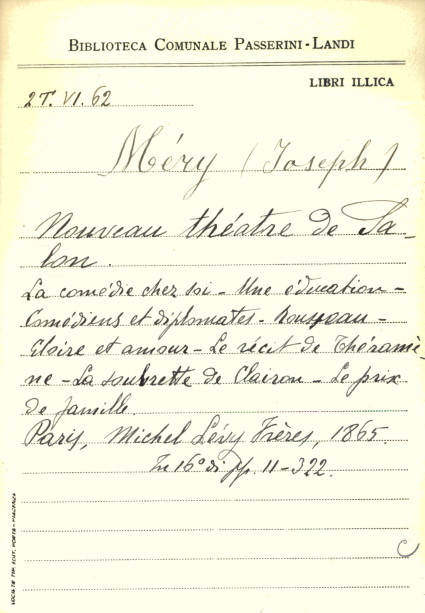 BIBLIOTECA COMUNALE PASSERINI-LANDI
LIBRI ILLICA
2T. VI. 62
Méry (Joseph)
Nouveau théatre de Sa-
lon.
La comédie chez soi - Une éducation -
Comédiens et diplomates - Rousseau -
Gloire et amour - Le récit de Théramè-
ne - La soubrette de Clairon - Le prix
de famille.
Paris, Michel Lévy Frères, 1865.
In 16° di pp. 11-322.
C